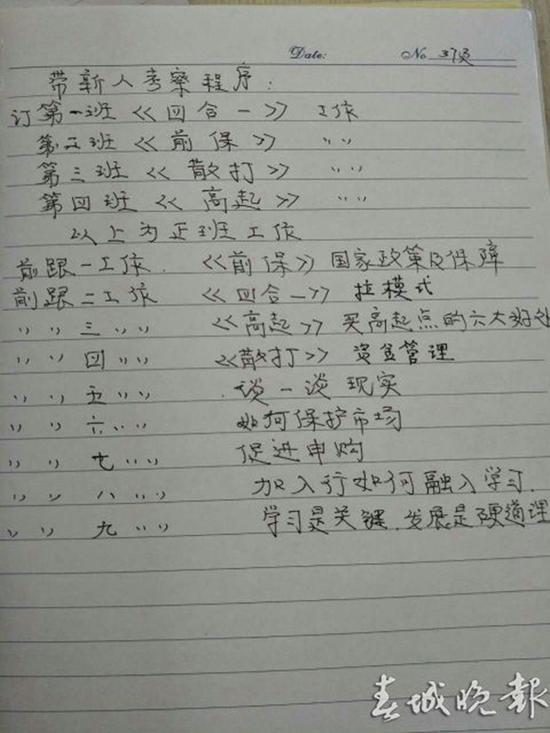 Date: No 37页
带新人考察程序:
订第一班 << 四合一 >> 工作
第二班 << 前保 >> 〃
第三班 << 散打 >> 〃
第四班 << 高起 >> 〃
以上为正班工作
前跟一工作. <<前保>> 国家政策及保障
前跟二工作 <<四合一>> 拉模式
〃 三 〃 <<高起>> 买高起点的六大好处
〃 四 〃 <<散打>> 资金管理
〃 五 〃 谈一谈现实
〃 六 〃 如何保护市场
〃 七 〃 促进申购
〃 八 〃 加入行如何融入学习.
〃 九 〃 学习是关键.发展是硬道理
春城晚報